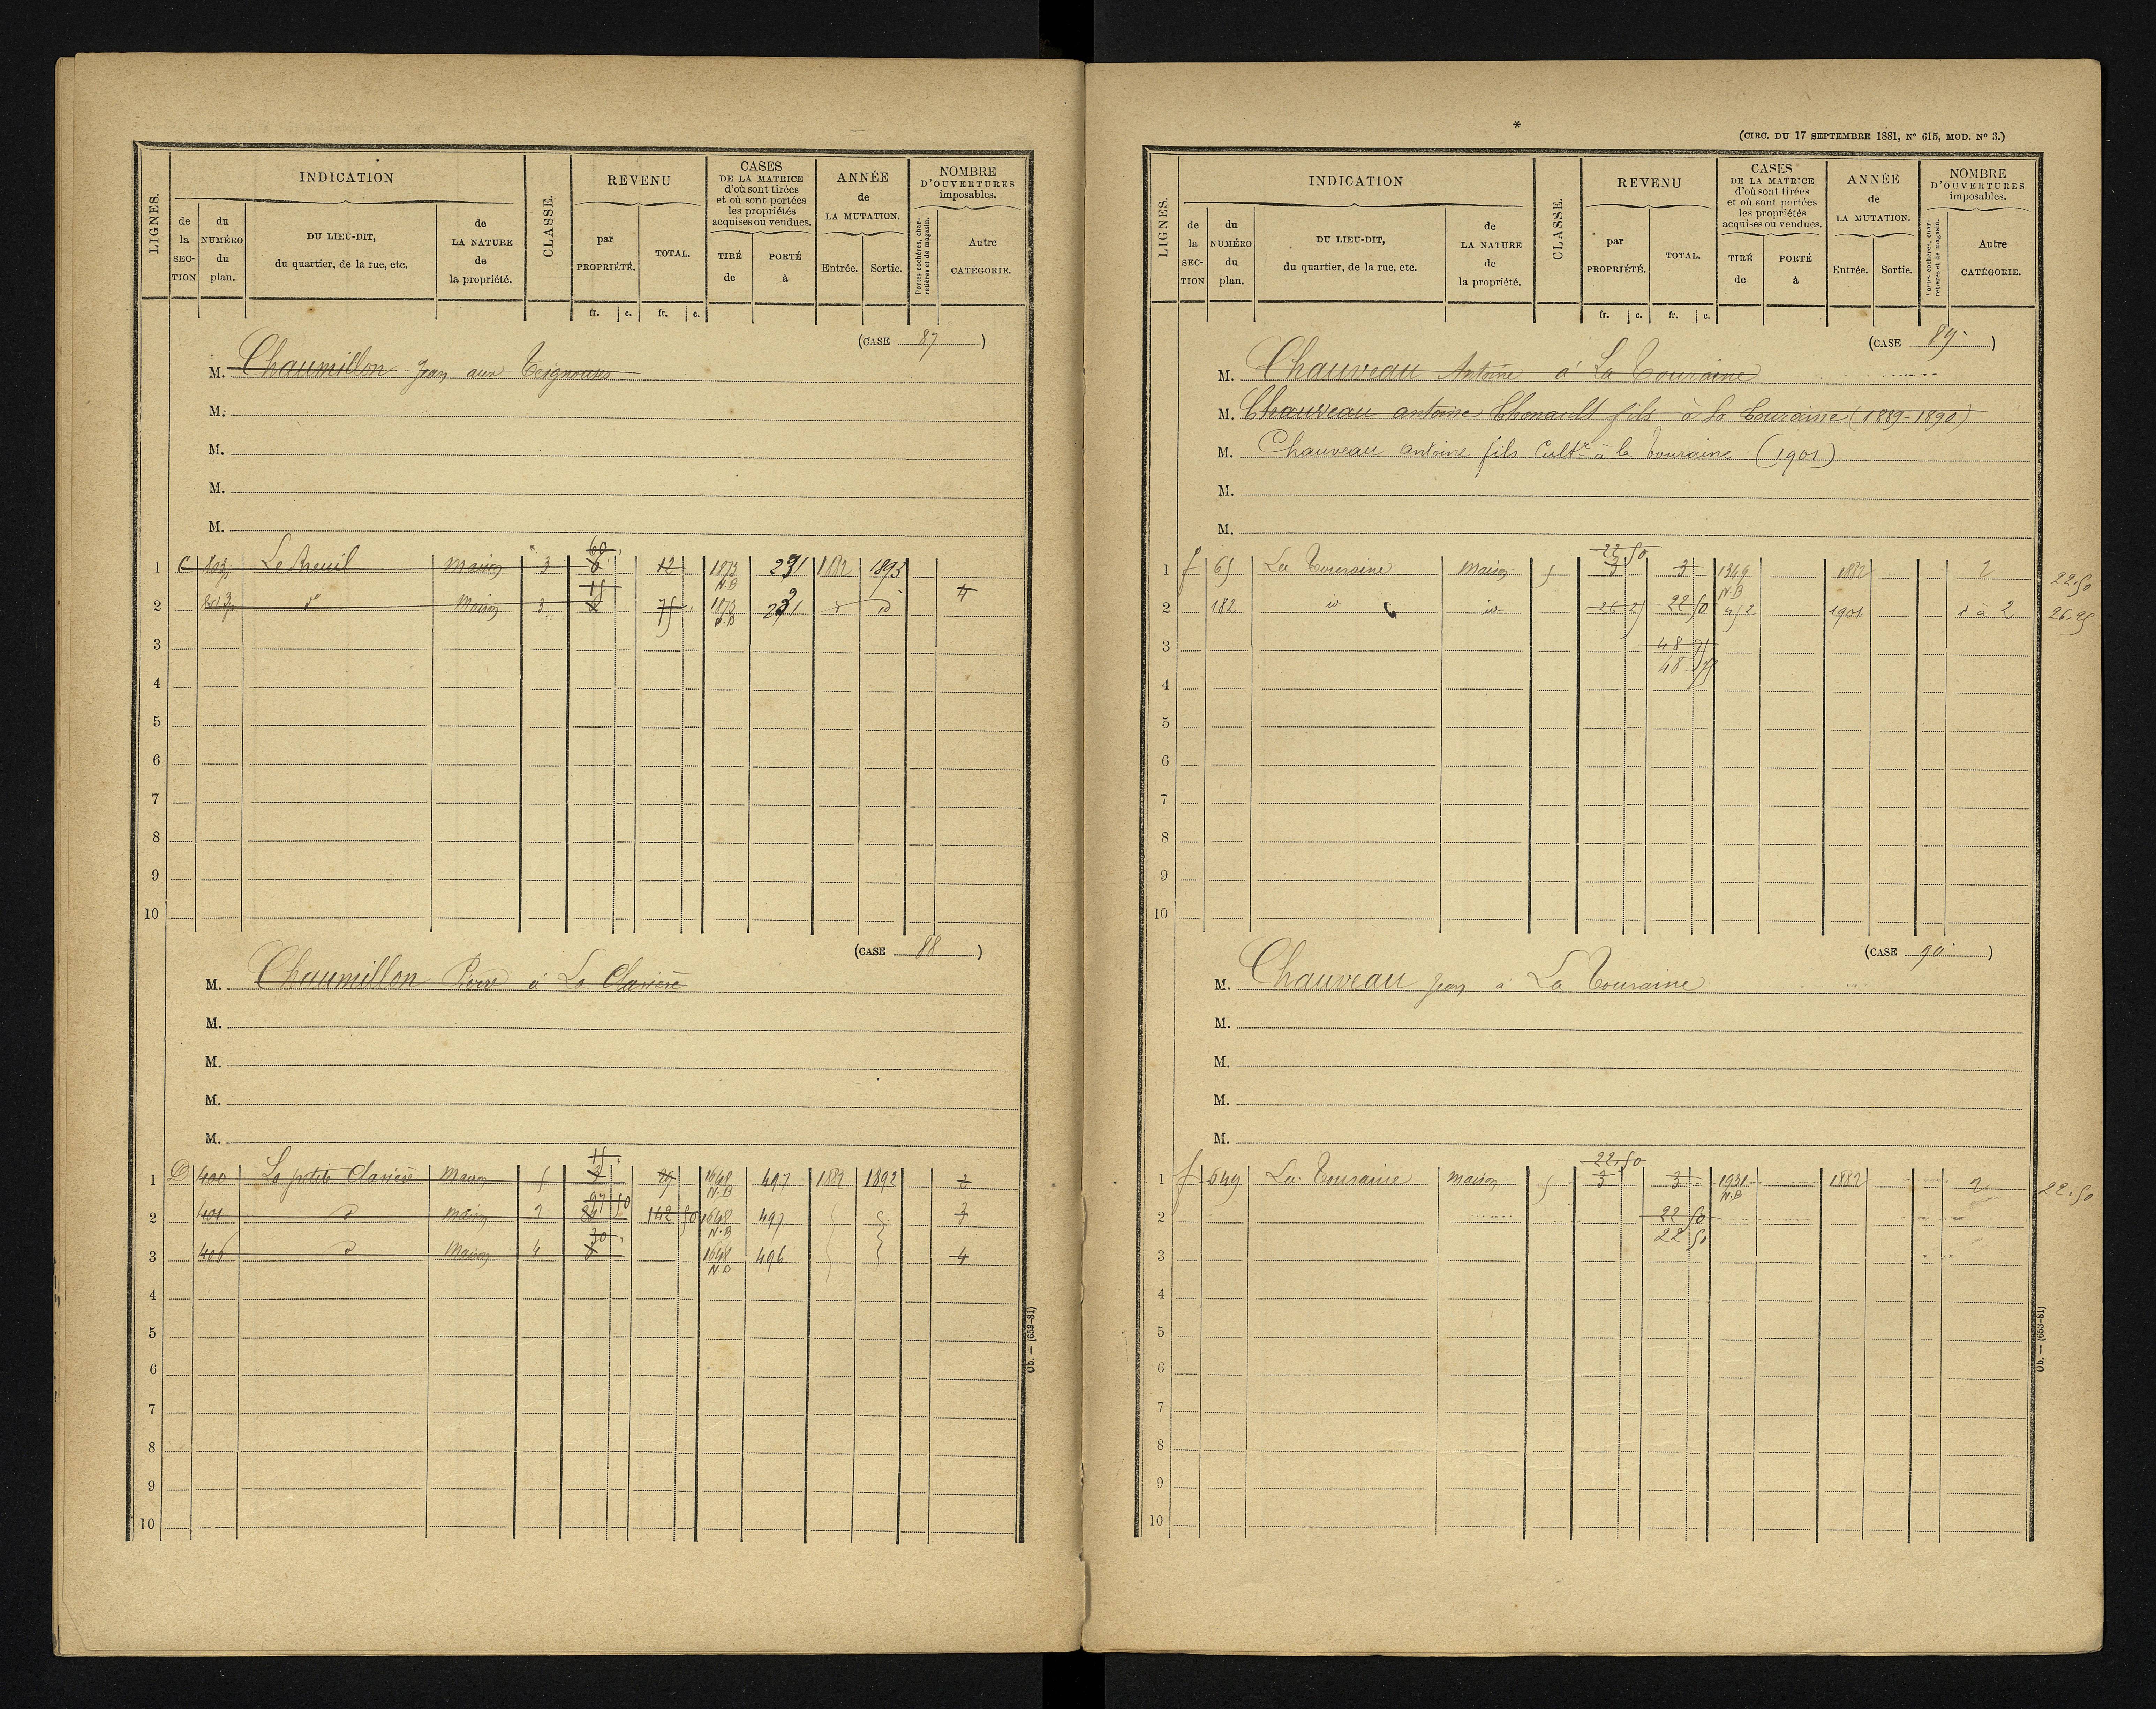 LIGNES.
INDICATION
de la SECTION
du NUMÉRO du plan.
DU LIEU-DIT, du quartier, de la rue, etc.
de LA NATURE de la propriété.
CLASSE.
REVENU
par PROPRIÉTÉ.
TOTAL.
CASES DE LA MATRICE d'où sont tirées et où sont portées les propriétés acquises ou vendues.
TIRÉ de
PORTÉ à
ANNÉE de LA MUTATION.
Entrée.
Sortie.
NOMBRE D'OUVERTURES imposables.
Portes cochères, charretières et de magasin.
Autre CATÉGORIE.
fr. c. fr. c.
(CASE 87)
M. Chaumillon Jean aux Teignouses
M.
M.
M.
M.
60
1 C Le Breuil maison 3 6 12 1873 N.B 231 1882 1895 4
15
2 do Maison 3 75 1873 N.B 231 d id
3
4
5
6
7
8
9
10
(CASE 88)
M. Chaumillon Pierre à La Clavière
M.
M.
M.
M.
15
1 D 400 La petite Clavière Maison 5 1648 N.B 497 1882 1892
97 50
2 401 d maison 142 50 1648 N.B 497 3
30
3 406 d Maison 4 1648 N.B 496 4
4
5
6
7
8
9
10
Ob. — (653-81)
*
(CIRC. DU 17 SEPTEMBRE 1881, No 615, MOD. No 3.)
LIGNES.
INDICATION
de la SECTION
du NUMÉRO du plan.
DU LIEU-DIT, du quartier, de la rue, etc.
de LA NATURE de la propriété.
CLASSE.
REVENU
par PROPRIÉTÉ.
TOTAL.
CASES DE LA MATRICE d'où sont tirées et où sont portées les propriétés acquises ou vendues.
TIRÉ de
PORTÉ à
ANNÉE de LA MUTATION.
Entrée.
Sortie.
NOMBRE D'OUVERTURES imposables.
Portes cochères, charretières et de magasin.
Autre CATÉGORIE.
fr. c. fr. c.
(CASE 89)
M. Chauveau Antoine à La Touraine
M. Chauveau antoine Thenault fils à la Touraine (1889-1890)
M. Chauveau antoine fils Cultr à la Touraine (1901)
M.
M.
22 50
1 f 65 La Touraine Maison 5 3 3 1349 N.B 1882 2 22.50
2 182 id id 26 25 22 50 952 1901 1 a 2 26.25
3 48 75
48 75
4
5
6
7
8
9
10
(CASE 90)
M. Chauveau Jean à La Touraine
M.
M.
M.
M.
22.50
1 f 649 La Touraine maison 5 3 3 1931 N.B 1882 2 22.50
2 22 50
22 50
3
4
5
6
7
8
9
10
Ob. — (653-81)